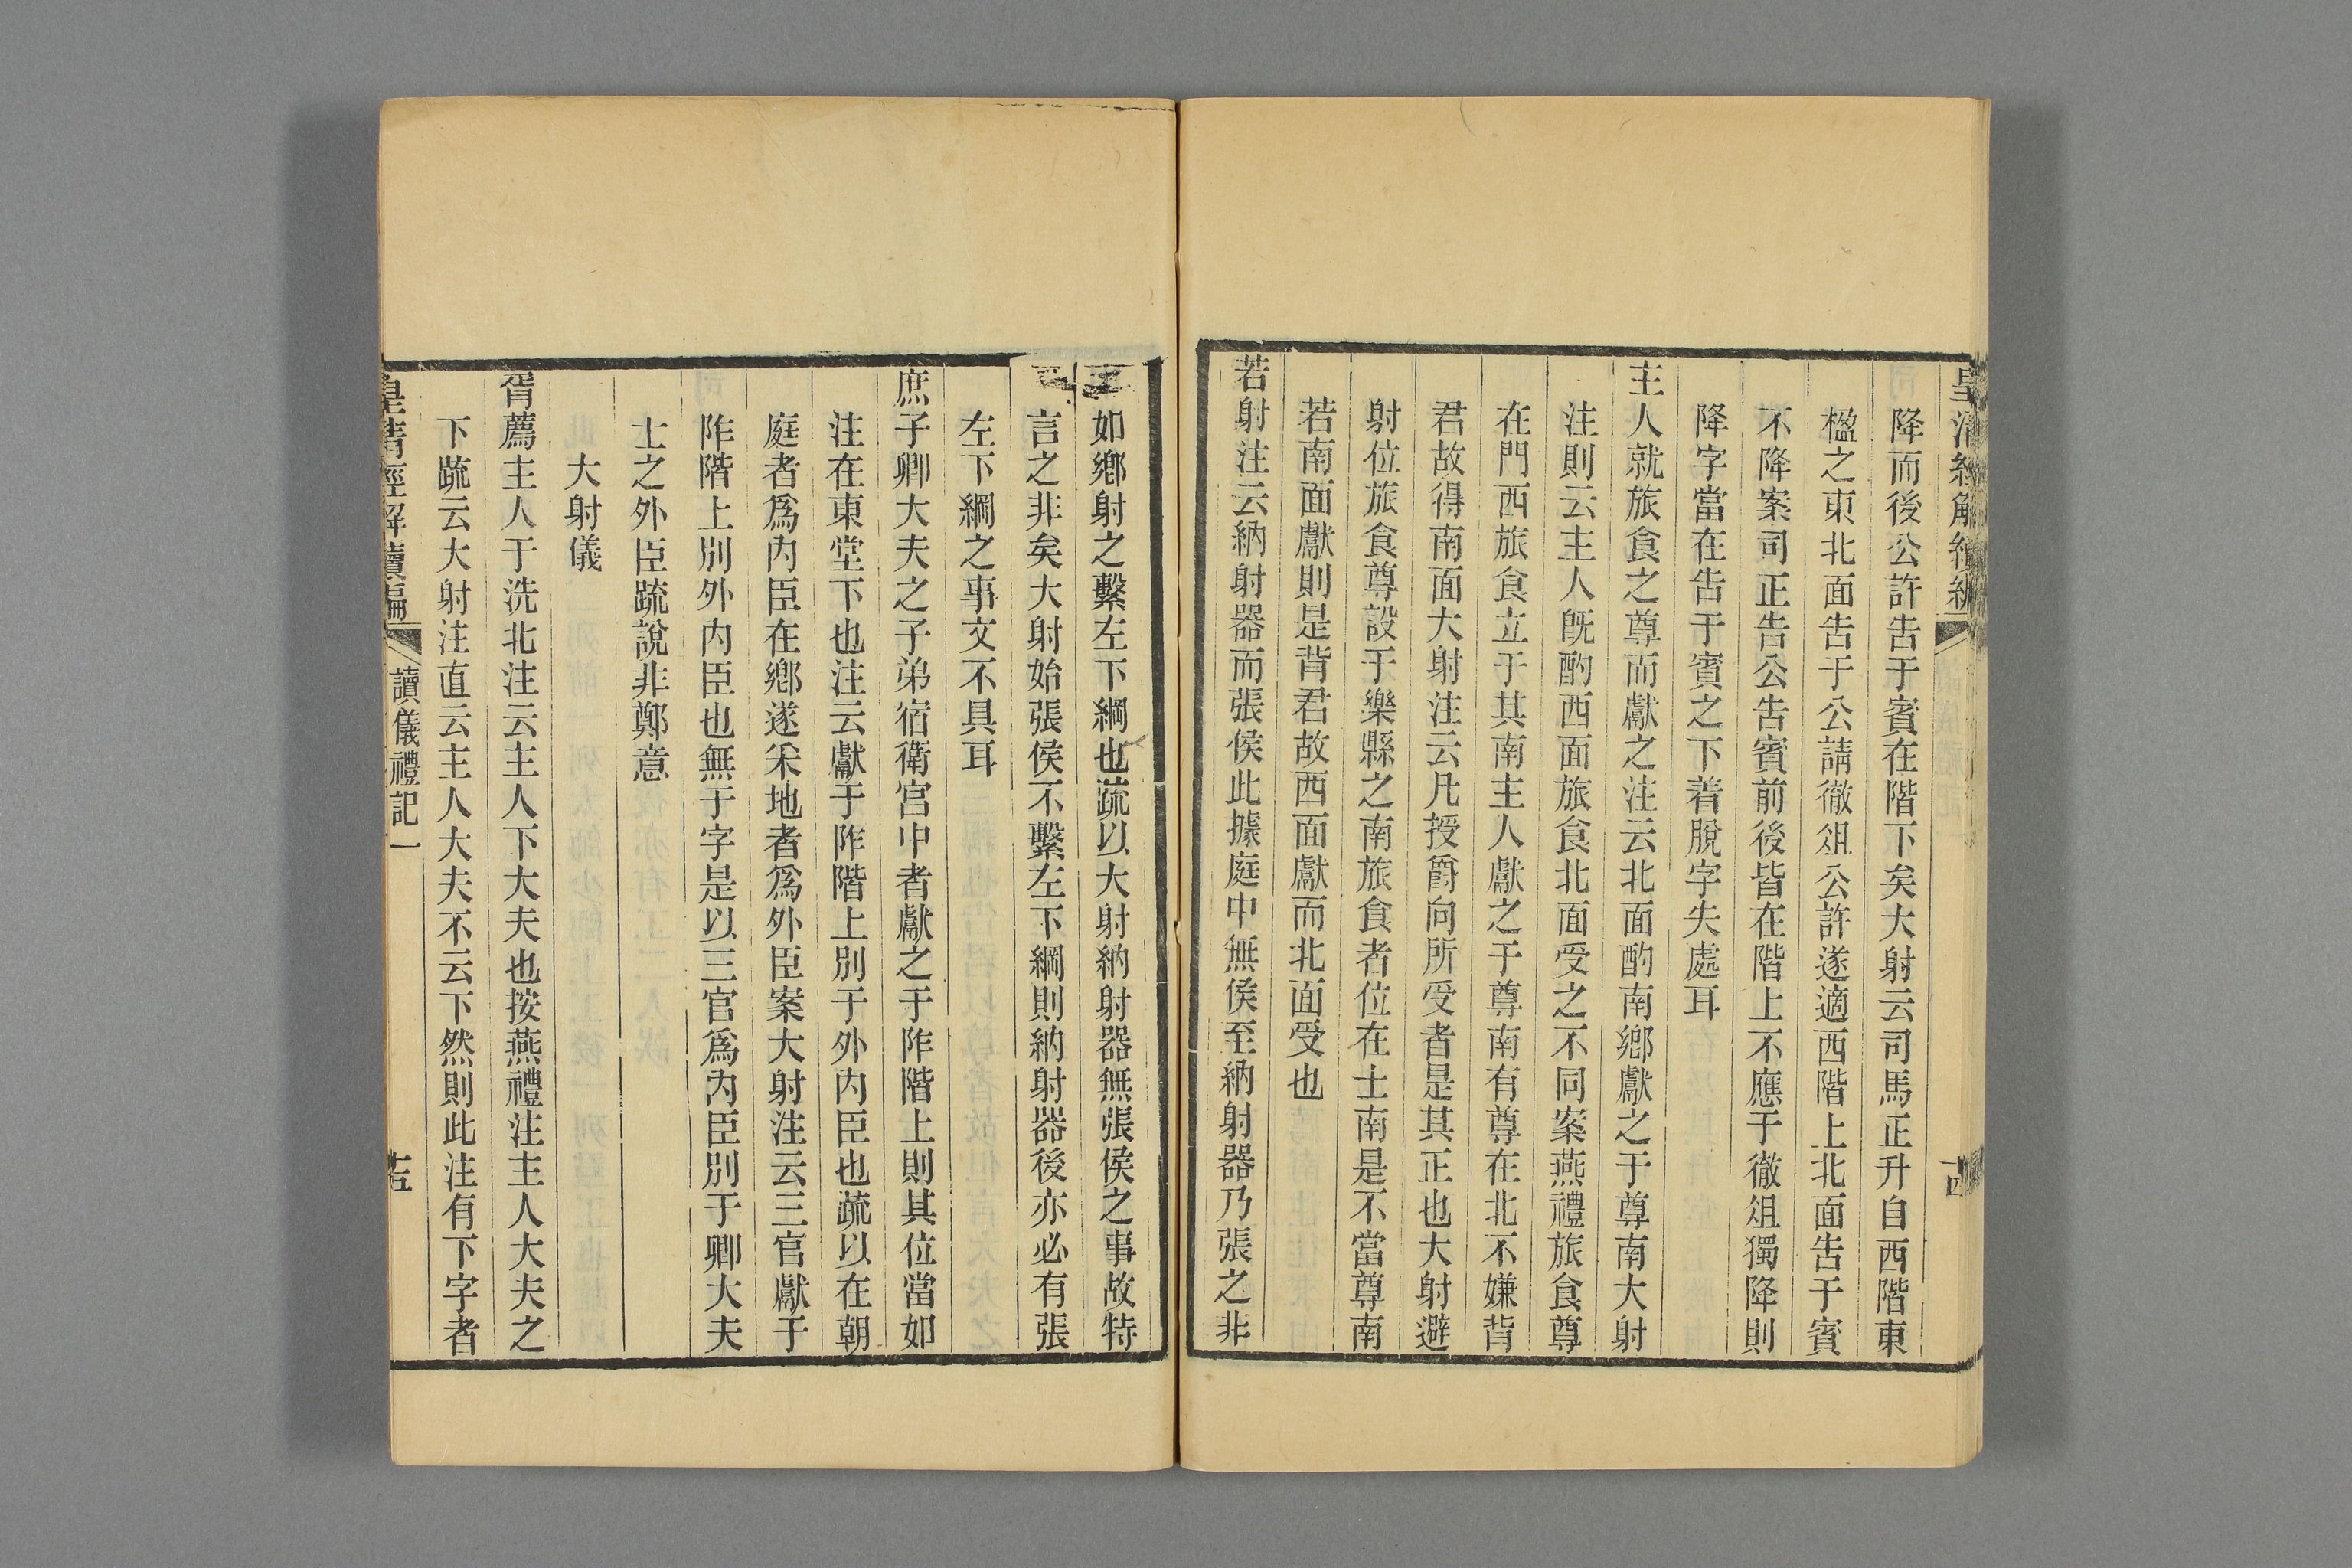 皇清經解續編
降而後公許告于賓在階下矣大射云司馬正升自西階東
楹之東北面告于公請徹俎公許遂適西階上北面告于賓
不降案司正告公告賓前後皆在階上不應于徹俎獨降則
降字當在告于賓之下着脫字失處耳
主人就旅食之尊而獻之注云北面酌南鄉獻之于尊南大射
注則云主人旣酌西面旅食北面受之不同案燕禮旅食尊
在門西旅食立于其南主人獻之于尊南有尊在北不嫌背
君故得南面大射注云凡授爵向所受者是其正也大射避
射位旅食尊設于樂縣之南旅食者位在士南是不當尊南
若南面獻則是背君故西面獻而北面受也
若射注云納射器而張侯此據庭中無侯至納射器乃張之非
如鄉射之繫左下綱也疏以大射納射器無張侯之事故特
言之非矣大射始張侯不繫左下綱則納射器後亦必有張
左下綱之事文不具耳
庶子卿大夫之子弟宿衛宮中者獻之于阼階上則其位當如
注在東堂下也注云獻于阼階上別于外內臣也疏以在朝
庭者爲內臣在鄉遂采地者爲外臣案大射注云三官獻于
阼階上別外內臣也無于字是以三官爲內臣別于卿大夫
士之外臣疏說非鄭意
大射儀
胥薦主人于洗北注云主人下大夫也按燕禮注主人大夫之
下疏云大射注直云主人大夫不云下然則此注有下字者
皇清經解續編
讀儀禮記一
十五